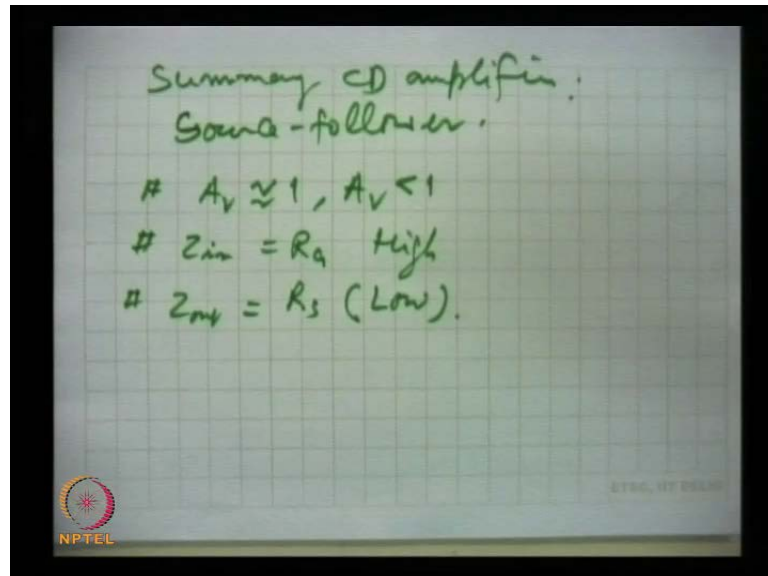 Summary CD amplifier:
Source-follower.
# A_V ≈ 1, A_V < 1
# Z_in = R_G High
# Z_out = R_S (Low).
ETSC, IIT DELHI
NPTEL